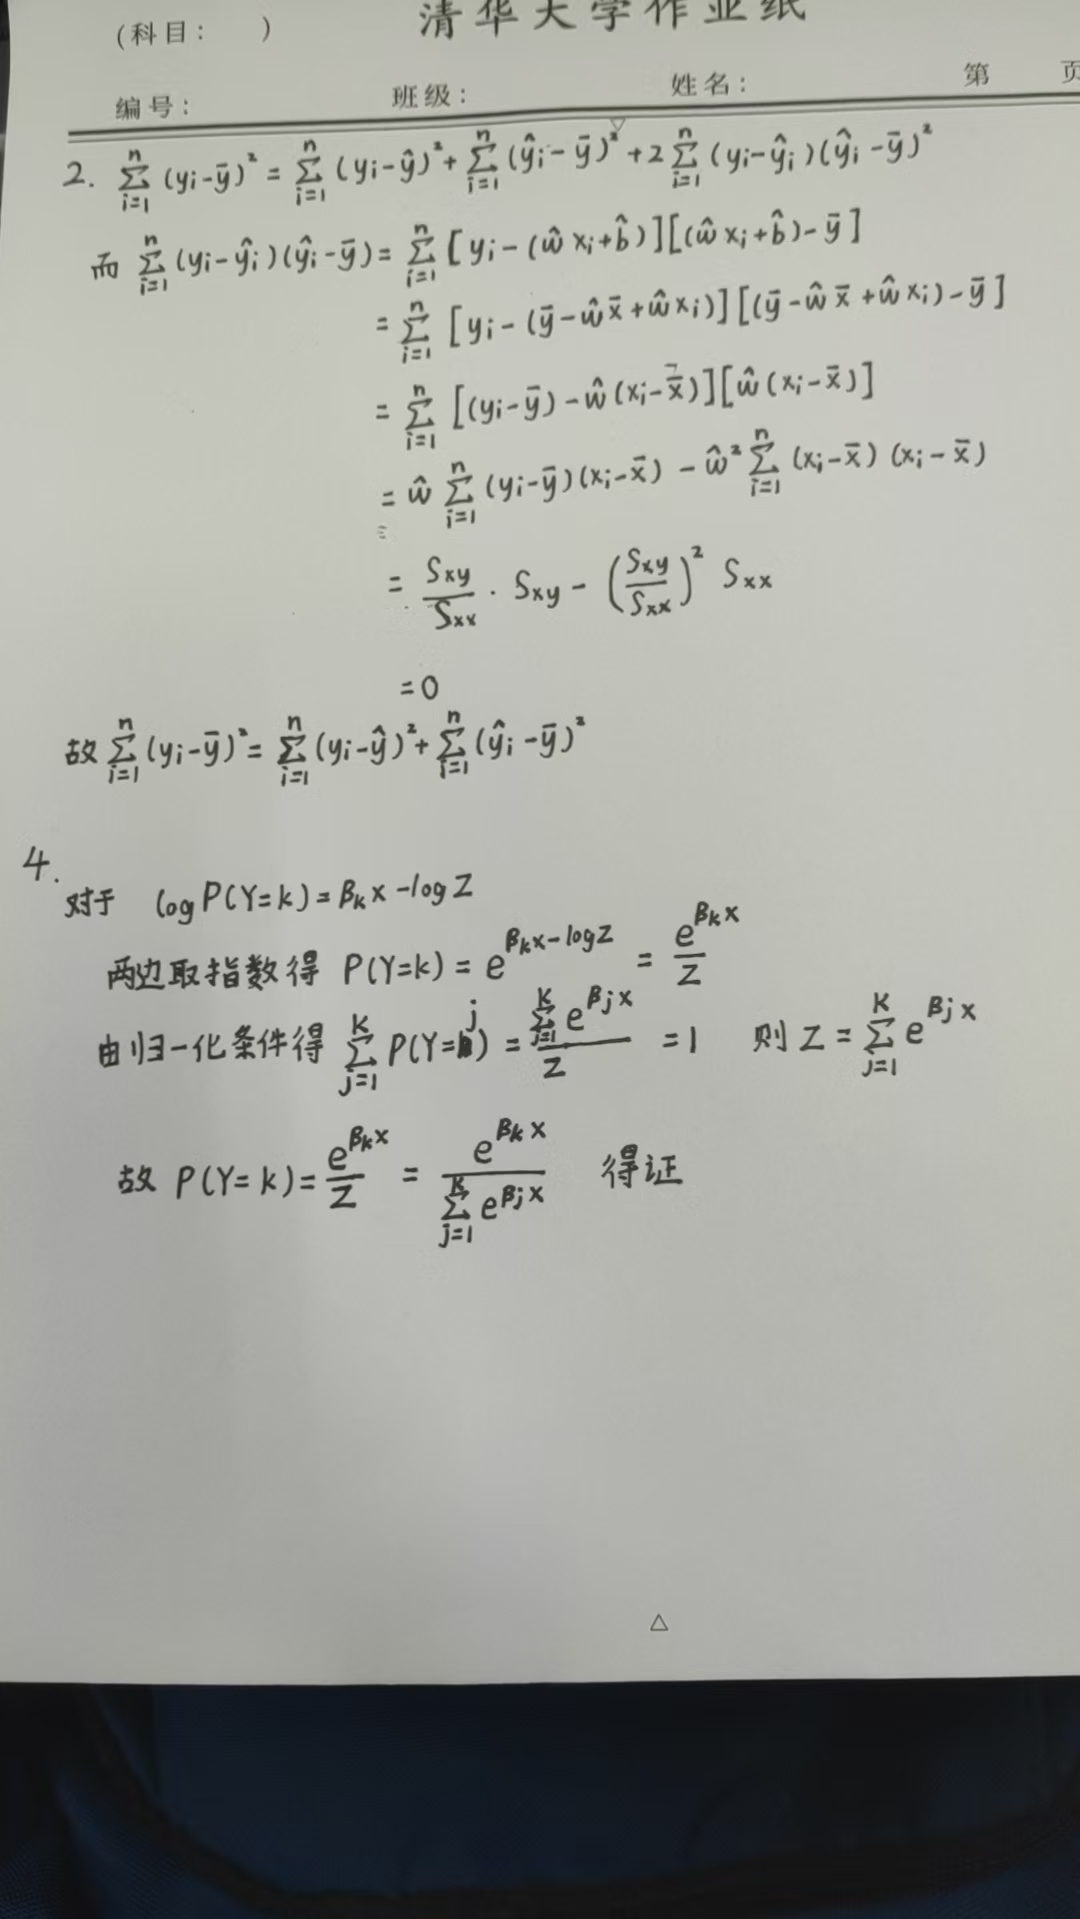 清华大学作业纸
(科目: )
编号: 班级: 姓名: 第 页
2. $\sum_{i=1}^{n}(y_i-\bar{y})^2=\sum_{i=1}^{n}(y_i-\hat{y})^2+\sum_{i=1}^{n}(\hat{y}_i-\bar{y})^2+2\sum_{i=1}^{n}(y_i-\hat{y}_i)(\hat{y}_i-\bar{y})^2$
而 $\sum_{i=1}^{n}(y_i-\hat{y}_i)(\hat{y}_i-\bar{y})=\sum_{i=1}^{n}[y_i-(\hat{w}x_i+\hat{b})][(\hat{w}x_i+\hat{b})-\bar{y}]$
$=\sum_{i=1}^{n}[y_i-(\bar{y}-\hat{w}\bar{x}+\hat{w}x_i)][(\bar{y}-\hat{w}\bar{x}+\hat{w}x_i)-\bar{y}]$
$=\sum_{i=1}^{n}[(y_i-\bar{y})-\hat{w}(x_i-\bar{x})][\hat{w}(x_i-\bar{x})]$
$=\hat{w}\sum_{i=1}^{n}(y_i-\bar{y})(x_i-\bar{x})-\hat{w}^2\sum_{i=1}^{n}(x_i-\bar{x})(x_i-\bar{x})$
$=\frac{S_{xy}}{S_{xx}}\cdot S_{xy}-\left(\frac{S_{xy}}{S_{xx}}\right)^2 S_{xx}$
$=0$
故 $\sum_{i=1}^{n}(y_i-\bar{y})^2=\sum_{i=1}^{n}(y_i-\hat{y})^2+\sum_{i=1}^{n}(\hat{y}_i-\bar{y})^2$
4.
对于 $\log P(Y=k)=\beta_k x-\log Z$
两边取指数得 $P(Y=k)=e^{\beta_k x-\log Z}=\frac{e^{\beta_k x}}{Z}$
由归一化条件得 $\sum_{j=1}^{K}P(Y=j)=\frac{\sum_{j=1}^{K}e^{\beta_j x}}{Z}=1$ 则 $Z=\sum_{j=1}^{K}e^{\beta_j x}$
故 $P(Y=k)=\frac{e^{\beta_k x}}{Z}=\frac{e^{\beta_k x}}{\sum_{j=1}^{K}e^{\beta_j x}}$ 得证